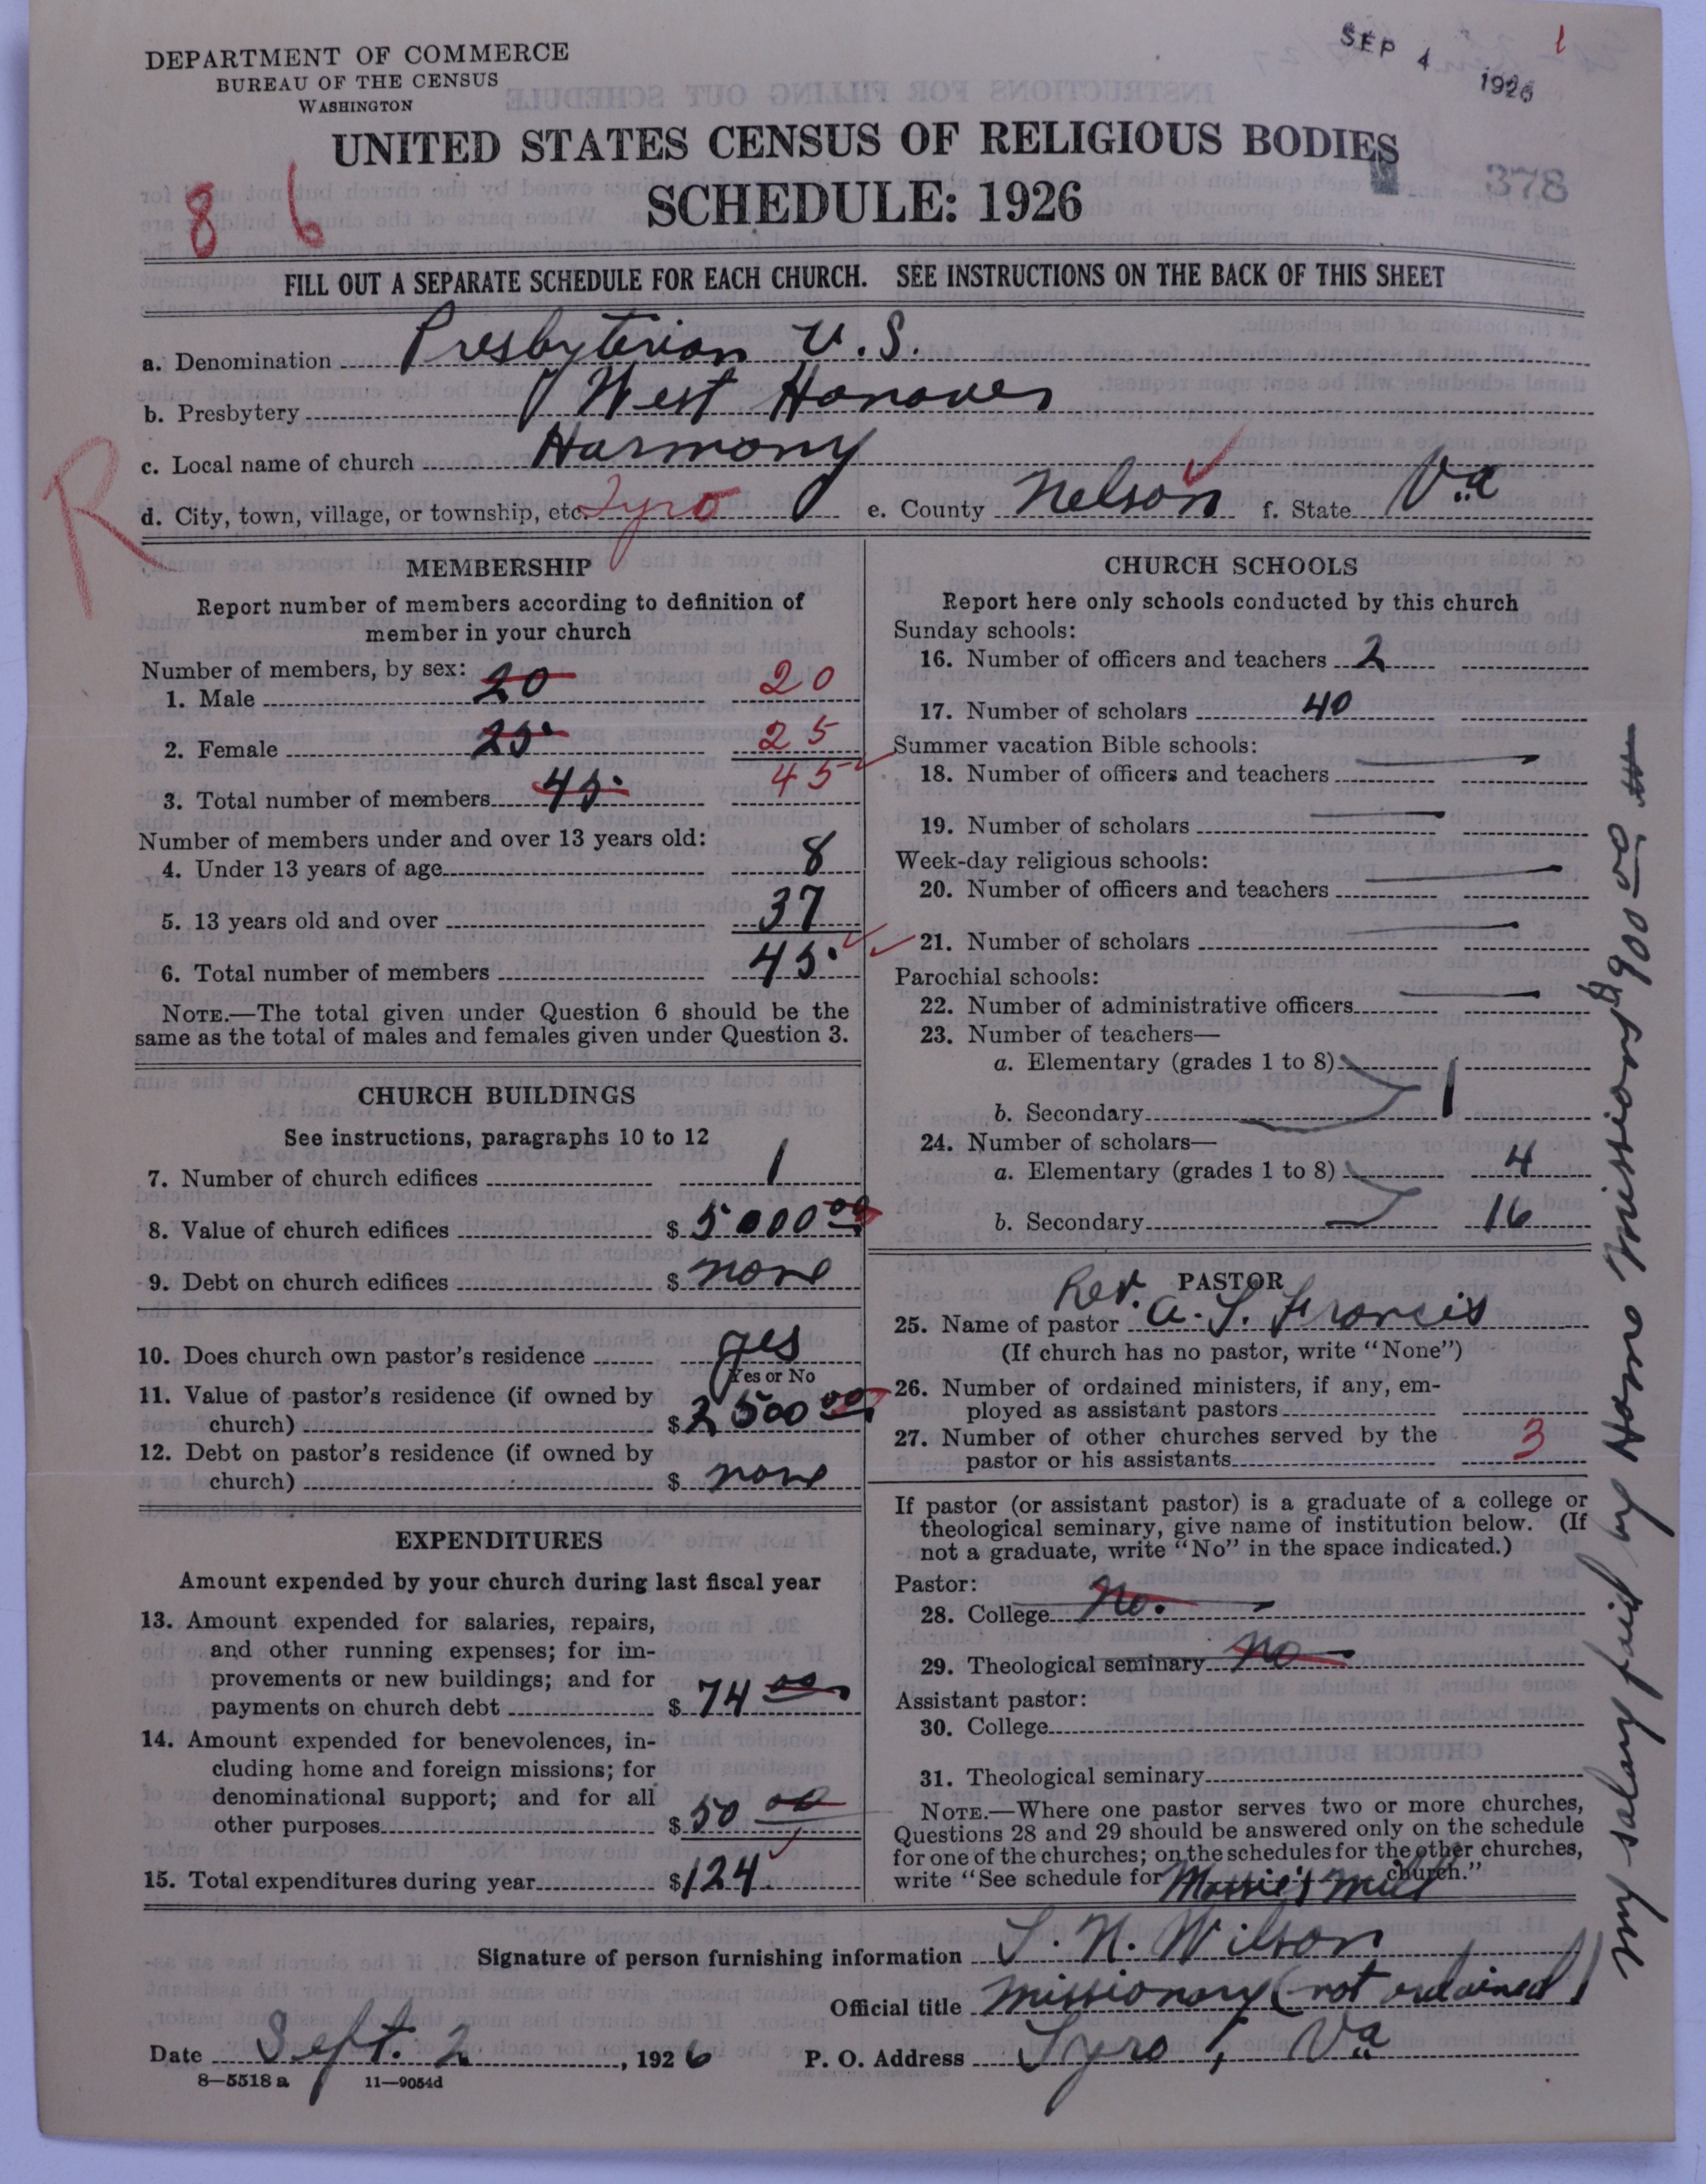 DEPARTMENT OF COMMERCE
BUREAU OF THE CENSUS
WASHINGTON
SEP 4 1926
1
UNITED STATES CENSUS OF RELIGIOUS BODIES
SCHEDULE: 1926
378
8 6
FILL OUT A SEPARATE SCHEDULE FOR EACH CHURCH. SEE INSTRUCTIONS ON THE BACK OF THIS SHEET
a. Denomination Presbyterian U.S.
b. Presbytery West Hanover
c. Local name of church Harmony
R
d. City, town, village, or township, etc. Tyro e. County Nelson f. State Va
MEMBERSHIP
Report number of members according to definition of
member in your church
Number of members, by sex:
1. Male 20 20
2. Female 25 25
3. Total number of members 45 45
Number of members under and over 13 years old:
4. Under 13 years of age 8
5. 13 years old and over 37
6. Total number of members 45
NOTE.—The total given under Question 6 should be the
same as the total of males and females given under Question 3.
CHURCH BUILDINGS
See instructions, paragraphs 10 to 12
7. Number of church edifices 1
8. Value of church edifices $ 5000 00
9. Debt on church edifices $ none
10. Does church own pastor's residence yes
Yes or No
11. Value of pastor's residence (if owned by
church) $ 2500 00
12. Debt on pastor's residence (if owned by
church) $ none
EXPENDITURES
Amount expended by your church during last fiscal year
13. Amount expended for salaries, repairs,
and other running expenses; for im-
provements or new buildings; and for
payments on church debt $ 74 00
14. Amount expended for benevolences, in-
cluding home and foreign missions; for
denominational support; and for all
other purposes $ 50 00
15. Total expenditures during year $ 124.
CHURCH SCHOOLS
Report here only schools conducted by this church
Sunday schools:
16. Number of officers and teachers 2
17. Number of scholars 40
Summer vacation Bible schools:
18. Number of officers and teachers
19. Number of scholars
Week-day religious schools:
20. Number of officers and teachers
21. Number of scholars
Parochial schools:
22. Number of administrative officers
23. Number of teachers—
a. Elementary (grades 1 to 8)
b. Secondary 1
24. Number of scholars—
a. Elementary (grades 1 to 8) 4
b. Secondary 16
PASTOR
25. Name of pastor Rev. A. L. Francis
(If church has no pastor, write "None")
26. Number of ordained ministers, if any, em-
ployed as assistant pastors
27. Number of other churches served by the
pastor or his assistants 3
If pastor (or assistant pastor) is a graduate of a college or
theological seminary, give name of institution below. (If
not a graduate, write "No" in the space indicated.)
Pastor:
28. College No.
29. Theological seminary No
Assistant pastor:
30. College
31. Theological seminary
NOTE.—Where one pastor serves two or more churches,
Questions 28 and 29 should be answered only on the schedule
for one of the churches; on the schedules for the other churches,
write "See schedule for Massie's Mill church."
my salary paid by Home Missions $900 00
Signature of person furnishing information L. N. Wilson
Official title Missionary (not ordained)
Date Sept. 2, 1926 P. O. Address Tyro, Va
8—5518 a 11—9054d